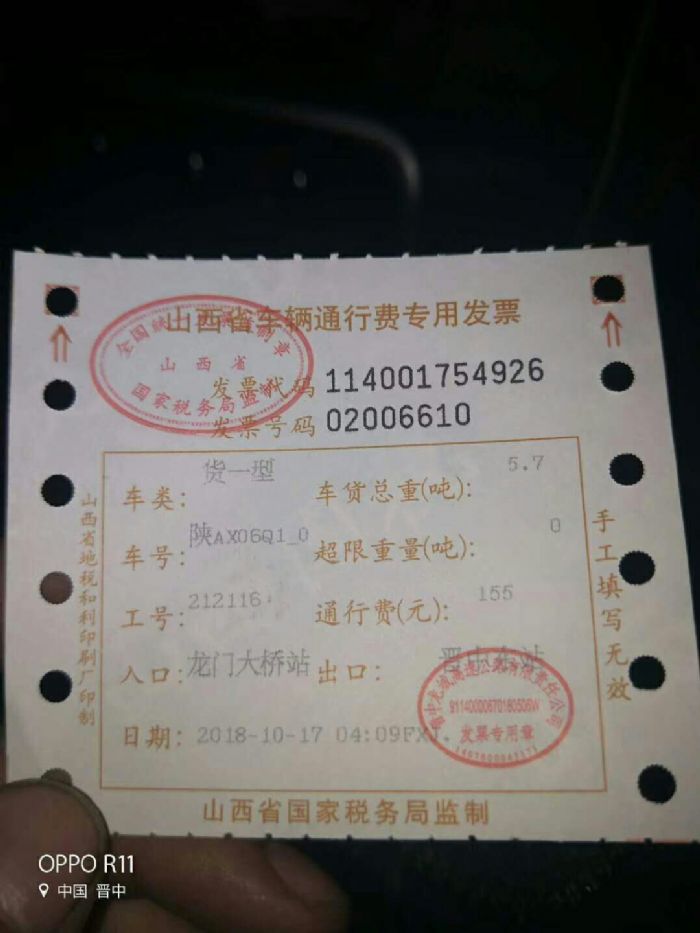 山西省车辆通行费专用发票
全国统一发票监制章
山西省
国家税务局监制
发票代码 114001754926
发票号码 02006610
车类: 货一型 车货总重(吨): 5.7
车号: 陕AX06Q1_0 超限重量(吨): 0
工号: 212116 通行费(元): 155
入口: 龙门大桥站 出口: 晋中东站
日期: 2018-10-17 04:09FXJ.
发票专用章
山西省国家税务局监制
山西省地税和利印刷厂印制
手工填写无效
OPPO R11
中国 晋中